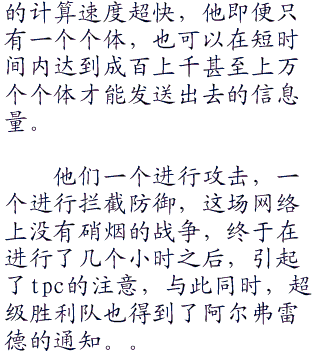 的计算速度超快，他即便只
有一个个体，也可以在短时
间内达到成百上千甚至上万
个个体才能发送出去的信息
量。
他们一个进行攻击，一
个进行拦截防御，这场网络
上没有硝烟的战争，终于在
进行了几个小时之后，引起
了tpc的注意，与此同时，超
级胜利队也得到了阿尔弗雷
德的通知。。